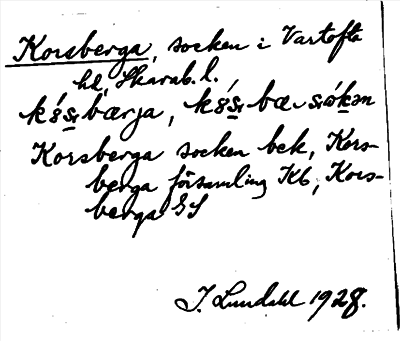 Korsberga, socken i Vartofta
hd, Skarab. l.
Korsberga socken bek, Kors-
berga församling Kb, Kors-
berga GS
I. Lundahl 1928.